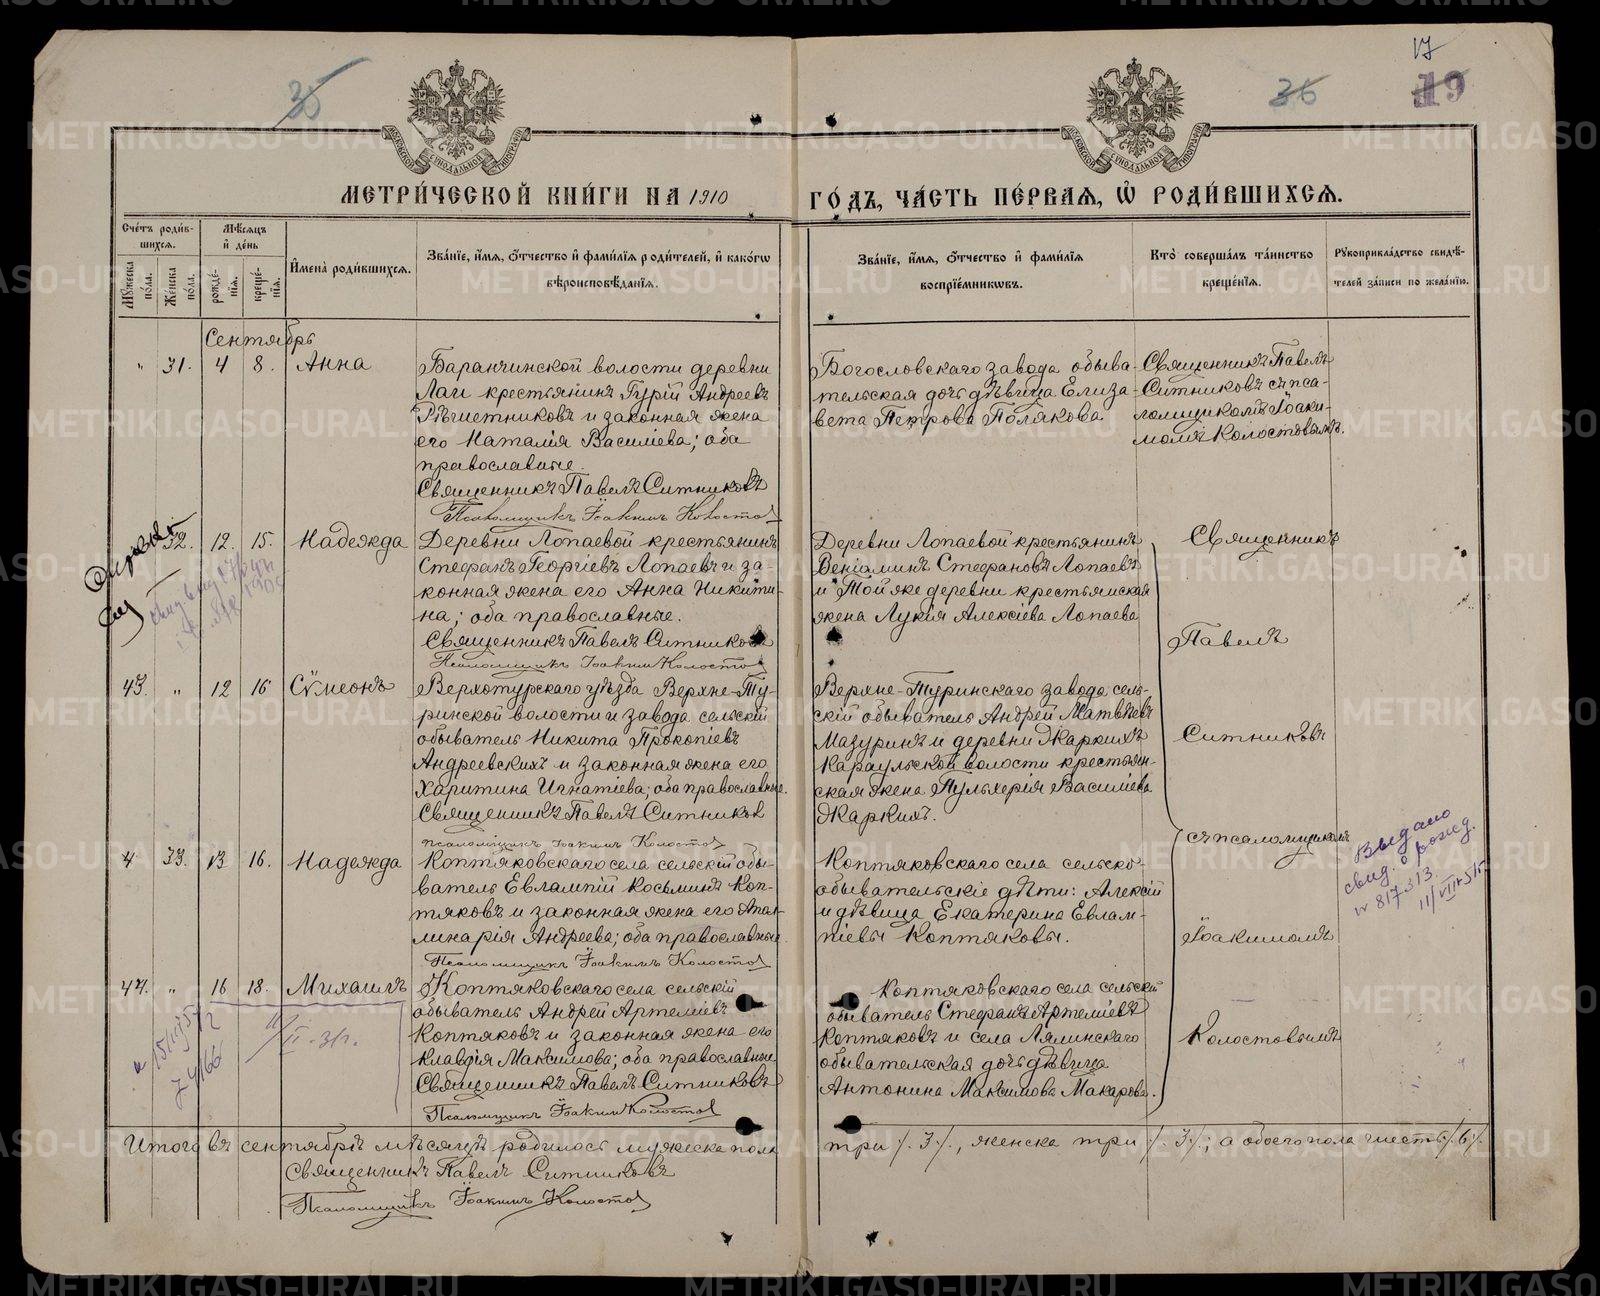 35
36
17
19
МОСКОВСКОЙ СѴНОДАЛЬНОЙ ТИПОГРАФІИ
МОСКОВСКОЙ СѴНОДАЛЬНОЙ ТИПОГРАФІИ
МЕТРИ́ЧЕСКОЙ КНИ́ГИ НА 1910 ГО́ДЪ, ЧА́СТЬ ПЕ́РВАЯ, Ѽ РОДИ́ВШИХСЯ.
Сче́тъ роди́в-
шихся.
Мѣ́сяцъ
и҆ де́нь
Му́жеска
по́ла.
Же́нска
по́ла.
рожде́-
нїя.
креще́-
нїя.
И҆мена̀ роди́вшихся.
Зва́нїе, и҆́мя, ѻ҆́тчество и҆ фами́лїя роди́телей, и҆ како́гѡ
вѣроисповѣ́данїя.
Зва́нїе, и҆́мя, ѻ҆́тчество и҆ фами́лїя
воспрїе́мниковъ.
Кто̀ соверша́лъ та́инство
креще́нїя.
Рꙋкоприкла́дство свидѣ́-
телей за́писи по жела́нїю.
Сентябрь
" 31. 4 8. Анна
Баранчинской волости деревни
Лаи крестьянинъ Гурій Андреевъ
Рѣшетниковъ и законная жена
его Наталія Василіева; оба
православные.
Священникъ Павелъ Ситниковъ
Псаломщикъ Іоакимъ Колостов
Богословскаго завода обыва-
тельская дочь дѣвица Елиза-
вета Петрова Полякова
Священникъ Павелъ
Ситниковъ съ пса-
ломщикомъ Іоаки-
момъ Колостовымъ.
32. 12. 15. Надежда
Деревни Лопаевой крестьянинъ
Стефанъ Георгіевъ Лопаевъ и за-
конная жена его Анна Никити-
на; оба православные.
Священникъ Павелъ Ситников
Псаломщикъ Іоакимъ Колостов
Деревни Лопаевой крестьянинъ
Веніаминъ Стефановъ Лопаевъ
и той же деревни крестьянская
жена Лукія Алексіева Лопаева
Священникъ
Павелъ
Ситниковъ
съ псаломщикомъ
Іоакимомъ
Колостовымъ
43. " 12 16 Сѵмеонъ
Верхотурскаго уѣзда Верхне-Ту-
ринской волости и завода сельскій
обыватель Никита Прокопіевъ
Андреевскихъ и законная жена его
Харитина Игнатіева; оба православные.
Священникъ Павелъ Ситниковъ
псаломщикъ Іоакимъ Колостов
Верхне-Туринскаго завода сель-
скій обыватель Андрей Матвѣевъ
Мазуринъ и деревни Жаркихъ
Караульской волости крестьян-
ская жена Пульхерія Василіева
Жаркихъ.
33. 13 16. Надежда
Коптяковскаго села сельскій обы-
ватель Евлампій Косьминъ Коп-
тяковъ и законная жена его Апол-
линарія Андреева; оба православные.
Псаломщикъ Іоакимъ Колостов
Коптяковскаго села сельско-
обывательскіе дѣти: Алексій
и дѣвица Екатерина Евлам-
піевы Коптяковы.
Выдано
свид. о рожд.
№ 817313
" 16 18. Михаилъ
Коптяковскаго села сельскій
обыватель Андрей Артеміевъ
Коптяковъ и законная жена его
Клавдія Максимова; оба православные
Священникъ Павелъ Ситниковъ
Псаломщикъ Іоакимъ Колостов
Коптяковскаго села сельскій
обыватель Стефанъ Артеміевъ
Коптяковъ и села Лялинскаго
обывательская дочь дѣвица
Антонина Максимова Макарова.
Итого въ сентябрѣ мѣсяцѣ родилось мужеска пола три /.3/., женска три /.3/.; а обоего пола шесть /.6/.
Священникъ Павелъ Ситниковъ
Псаломщикъ Іоакимъ Колостов
METRIKI.GASO-URAL.RU